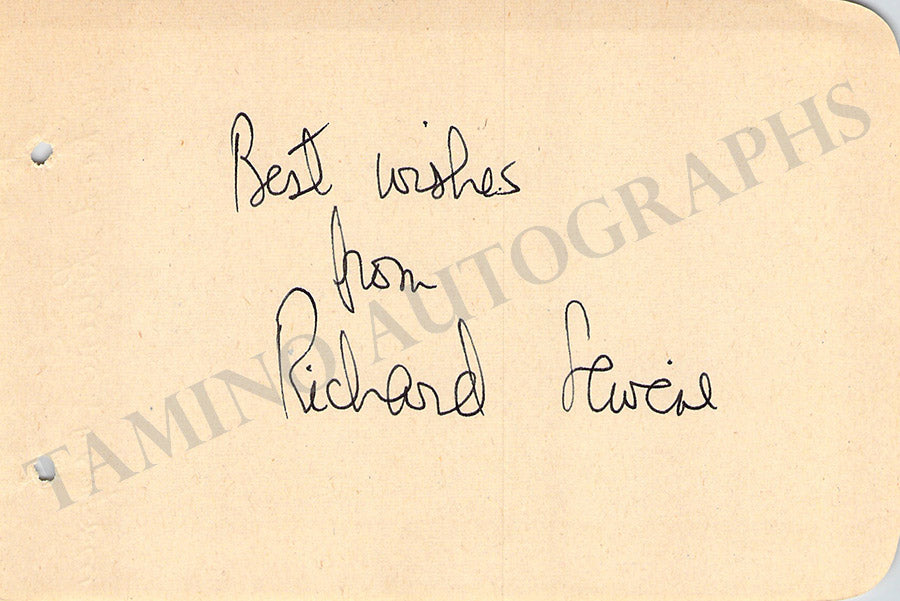 Best wishes
from
Richard
TAMINO AUTOGRAPHS